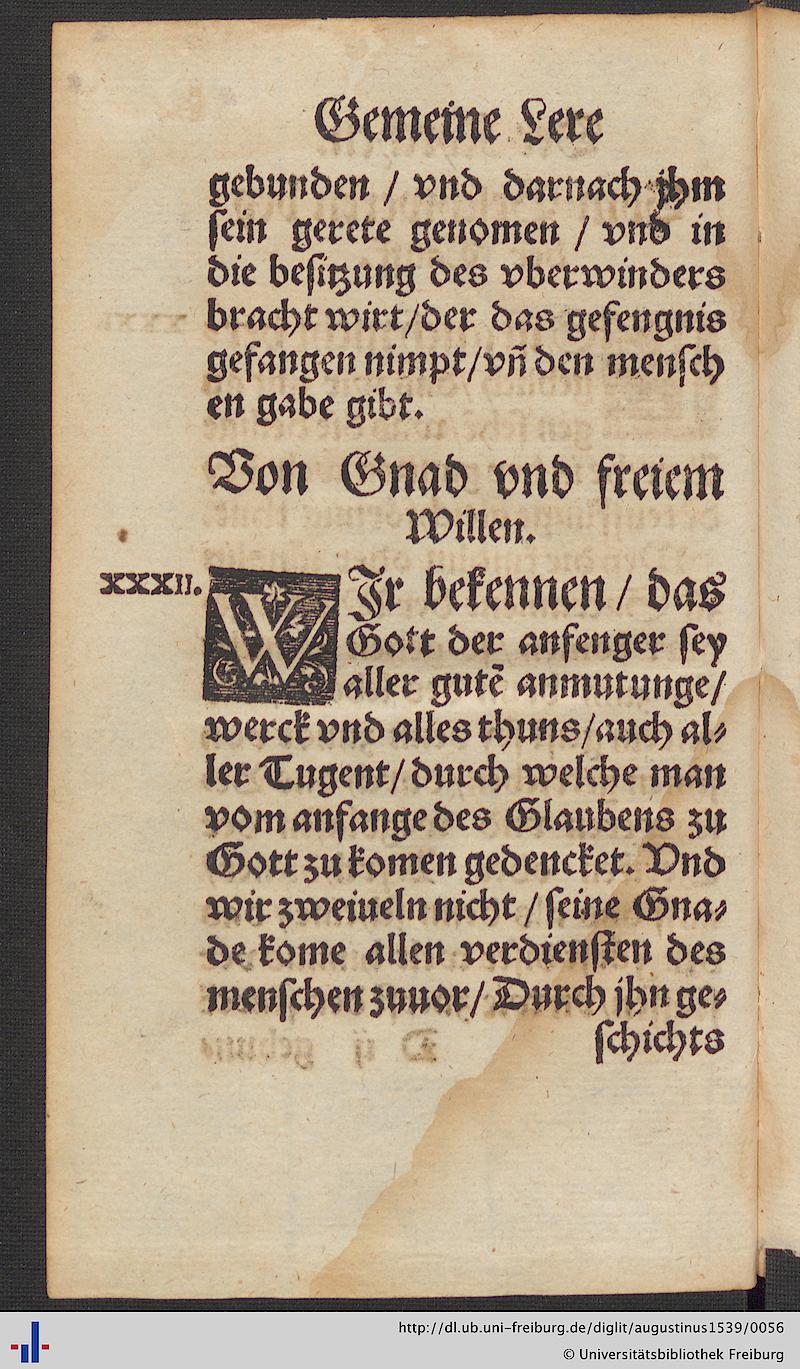 Gemeine Lere
gebunden / vnd darnach jhm
sein gerete genomen / vnd in
die besitzung des vberwinders
bracht wirt/der das gefengnis
gefangen nimpt/vñ den mensch
en gabe gibt.
Von Gnad vnd freiem
Willen.
XXXII. WJr bekennen / das
Gott der anfenger sey
aller gutẽ anmutunge/
werck vnd alles thuns/auch al⸗
ler Tugent/durch welche man
vom anfange des Glaubens zu
Gott zu komen gedencket. Vnd
wir zweiueln nicht / seine Gna⸗
de kome allen verdiensten des
menschen zuuor/ Durch jhn ge⸗
schichts
http://dl.ub.uni-freiburg.de/diglit/augustinus1539/0056
© Universitätsbibliothek Freiburg